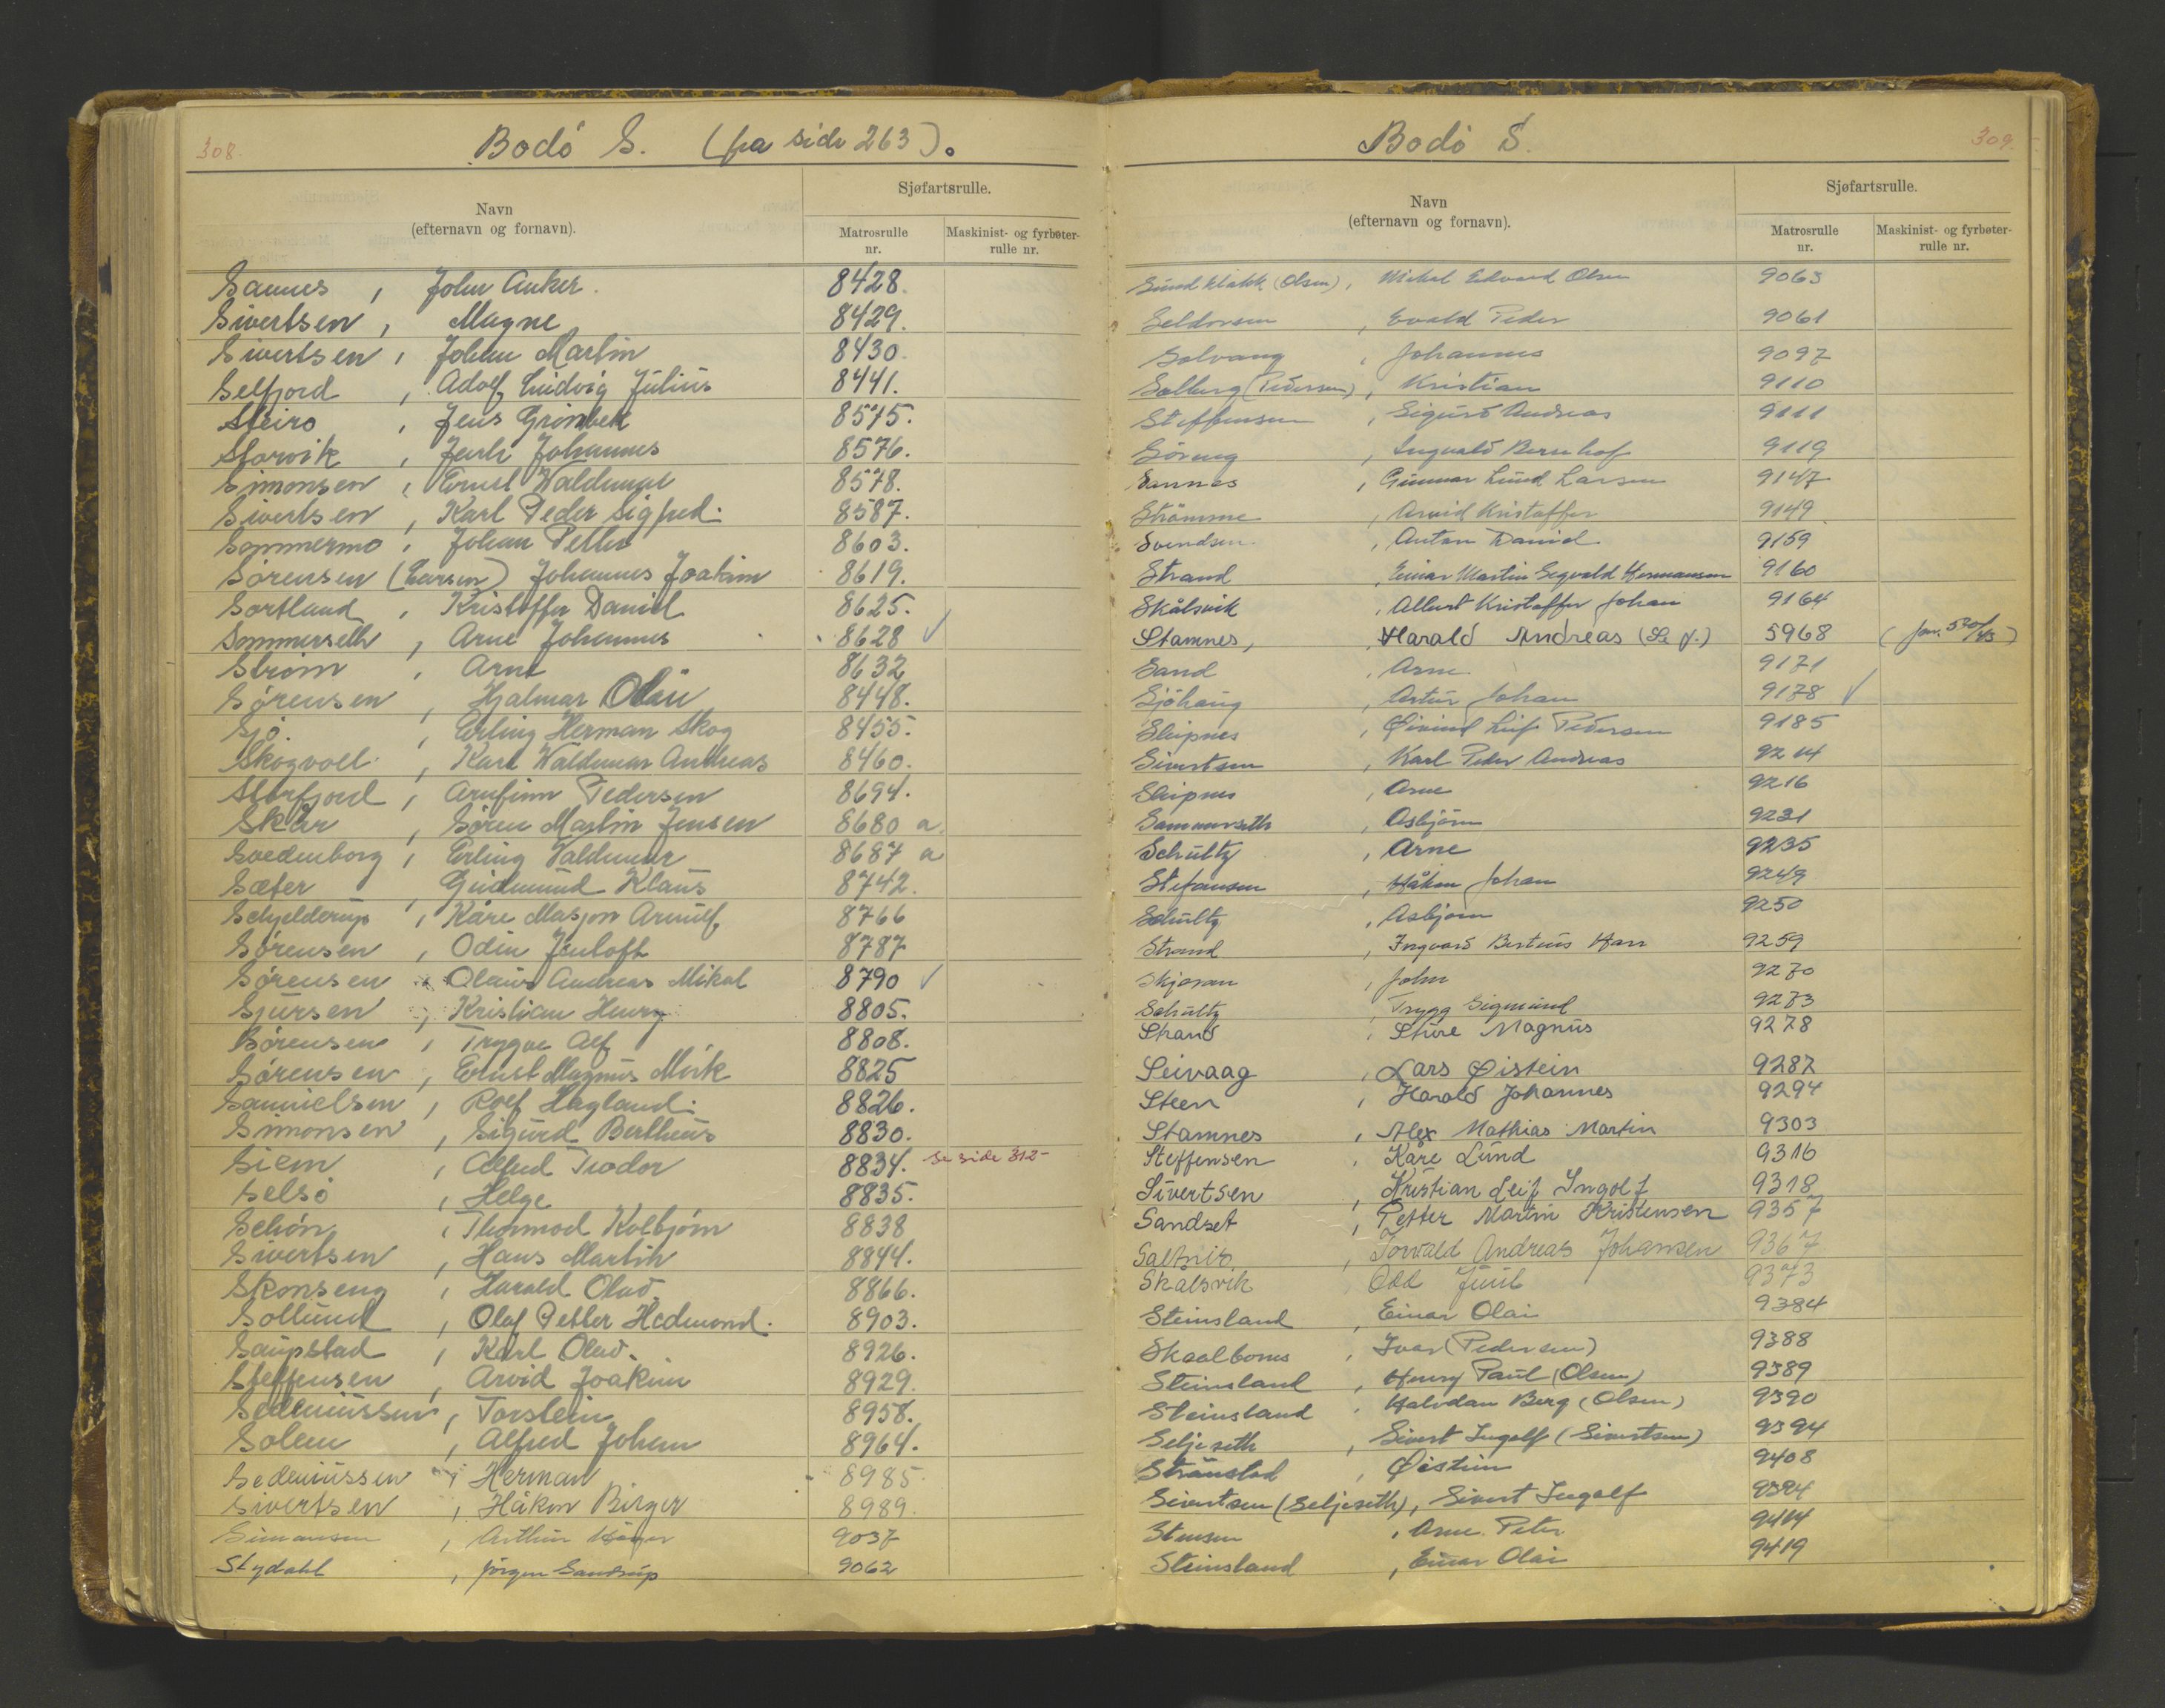 308.
Bodø S. (fra side 263).
Navn
(efternavn og fornavn).
Sjøfartsrulle.
Matrosrulle
nr.
Maskinist- og fyrbøter-
rulle nr.
Sannes, John Anker. 8428.
Sivertsen, Magne 8429.
Sivertsen, Johan Martin 8430.
Selfjord, Adolf Ludvig Julius 8441.
Steiro, Jens Grönbek 8575.
Storvik, Jarle Johannes 8576.
Simonsen, Ernst Waldemar 8578.
Sivertsen, Karl Peder Sigfred. 8587.
Sommermo, Johan Petter 8603.
Sørensen (Larsen) Johannes Joakim 8619.
Sortland, Kristoffer Daniel 8625.
Sommerseth, Arne Johannes 8628 ✓
Strøm, Arne 8632
Sørensen, Hjalmar Olai 8448.
Sjö., Erling Herman Skog 8455.
Skogvoll, Karl Waldemar Andreas 8460.
Storfjord, Arnfinn Pedersen 8694.
Skår, Sören Martin Jensen 8680 a
Svedenborg, Erling Valdemar 8687 a
Sæter, Gudmund Klaus 8742.
Schjelderup, Kåre Masjon Arnulf 8766
Sørensen, Odin Jentoft 8787
Sørensen, Olaus Andreas Mikal 8790 ✓
Sjursen, Kristian Henry 8805.
Sörensen, Trygve Alf 8808.
Sørensen, Ernst Magnus Mörk 8825
Samuelsen, Rolf Hagland. 8826.
Simonsen, Sigurd Bertheus 8830.
Siem, Alfred Teodor 8834. se side 312-
Selsö, Helge 8835.
Schön, Thormod Kolbjörn 8838
Sivertsen, Hans Martin 8844.
Skonseng, Harald Olav. 8866.
Sollund, Olaf Petter Hedmond. 8903.
Saupstad, Karl Olav. 8926.
Steffensen, Arvid Joakim 8929.
Sedeniussen, Torstein 8958.
Solem, Alfred Johan 8964.
Sedeniussen, Herman 8985.
Sivertsen, Håkon Birger 8989.
Simonsen, Arthur 9037
Stydahl, Jörgen Sandrup 9062
Bodø S.
309.
Navn
(efternavn og fornavn).
Sjøfartsrulle.
Matrosrulle
nr.
Maskinist- og fyrbøter-
rulle nr.
Sundklakk (Olsen), Mikal Edvard Olsen 9063
Seldorsen, Evald Peder 9061
Solvang, Johannes 9097
Solberg (Pedersen), Kristian 9110
Steffensen, Sigurd Andreas 9111
Ingvald Bernhof 9119
Sannes, Gunnar Lund Larsen 9147
Strömme, Arvid Kristoffer 9149
Svendsen, Anton Daniel 9159
Strand, Einar Martin Sigvald Hermansen 9160
Skålsvik, Albert Kristoffer Johan 9164
Stamnes, Harald Andreas (Se f.) 5968
Sand, Arne 9171
Sjöhaug, Artur Johan 9178 ✓
Sleipnes, Øivind Leif Pedersen 9185
Sivertsen, Karl Peder Andreas 9214
Sleipnes, Arne 9216
Sommerseth, Asbjörn 9231
Schultz, Arne 9235
Stefansen, Håkon Johan 9249
Schultz, Asbjørn 9250
Strand, Ingvard Berteus Harr 9259
Skjevan, John 9270
Schultz, Trygg Sigmund 9273
Strand, Sture Magnus 9278
Seivaag, Lars Øistein 9287
Steen, Harald Johannes 9294
Stamnes, Alex Mathias Martin 9303
Steffensen, Kåre Lund 9316
Sivertsen, Kristian Leif Ingolf 9318
Sandset, Petter Martin Kristensen 9357
Saltnir, Torvald Andreas Johansen 9367
Skålsvik, Odd Juul 9373
Steinsland, Einar Olai 9384
Skaalbones, Ivar (Pedersen) 9388
Steinsland, Henry Paul (Olsen) 9389
Steinsland, Halvdan Berg (Olsen) 9390
Seljeseth, Sivert Ingolf (Sivertsen) 9394
Straustad, Øistein 9408
Sivertsen (Seljeseth), Sivert Ingolf 9394
Stensen, Arne Peter 9414
Steinsland, Einar Olai 9419